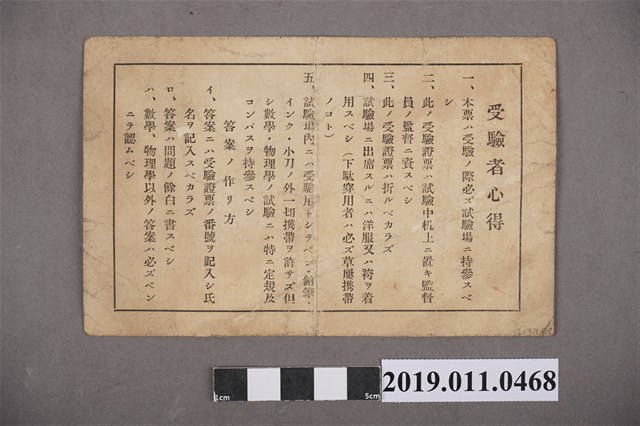 受驗者心得
一、本票ハ受驗ノ際必ズ試驗場ニ持參スベ
シ
二、此ノ受驗證票ハ試驗中机上ニ置キ監督
員ノ監督ニ資スベシ
三、此ノ受驗證票ハ折ルベカラズ
四、試驗場ニ出席スルニハ洋服又ハ袴ヲ着
用スベシ(下駄穿用者ハ必ズ草履携帶
ノコト)
五、試驗場內ニハ受驗用トシテペン・鉛筆・
インク・小刀ノ外一切携帶ヲ許サズ但
シ數學・物理學ノ試驗ニハ特ニ定規及
コンパスヲ持參スベシ
答案ノ作リ方
イ、答案ニハ受驗證票ノ番號ヲ記入シ氏
名ヲ記入スベカラズ
ロ、答案ハ問題ノ餘白ニ書スベシ
ハ、數學、物理學以外ノ答案ハ必ズペン
ニテ認ムベシ
1cm
5cm
2019.011.0468